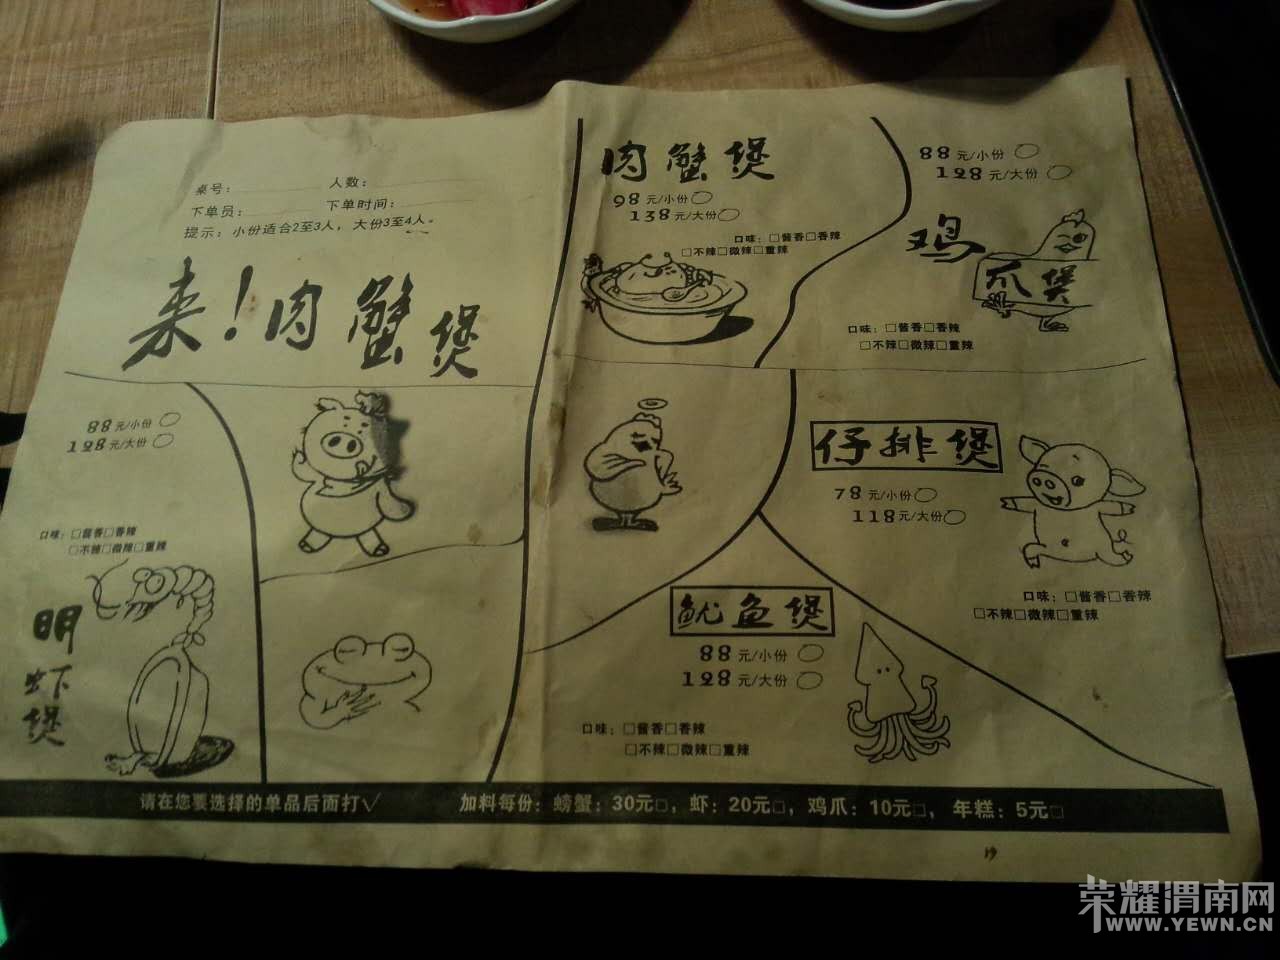 桌号： 人数：
下单员： 下单时间：
提示：小份适合2至3人，大份3至4人。
来！肉蟹煲
肉蟹煲
98元/小份
138元/大份
口味：□酱香□香辣
□不辣□微辣□重辣
88元/小份
128元/大份
鸡
爪煲
口味：□酱香□香辣
□不辣□微辣□重辣
88元/小份
128元/大份
口味：□酱香□香辣
□不辣□微辣□重辣
明
虾
煲
仔排煲
78元/小份
118元/大份
口味：□酱香□香辣
□不辣□微辣□重辣
鱿鱼煲
88元/小份
128元/大份
口味：□酱香□香辣
□不辣□微辣□重辣
请在您要选择的单品后面打√ 加料每份：螃蟹：30元□，虾：20元□，鸡爪：10元□，年糕：5元□
荣耀渭南网
WWW.YEWN.CN